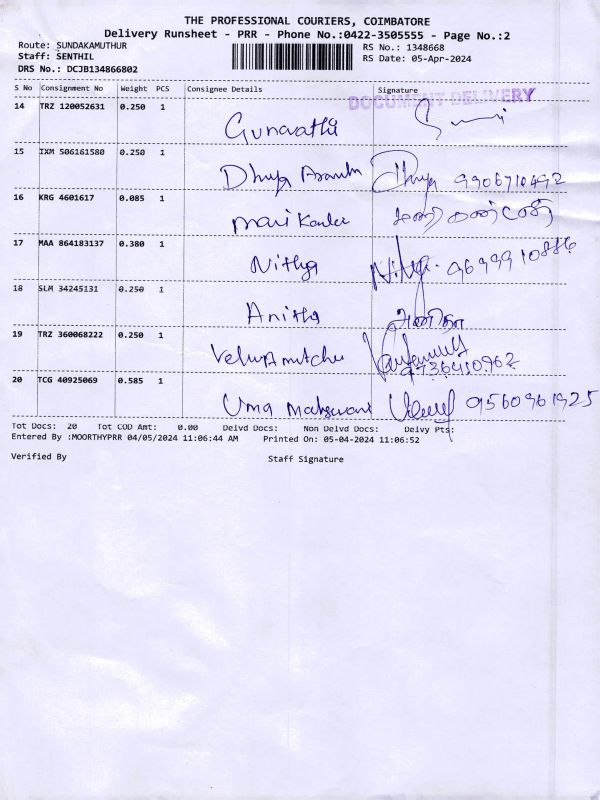 THE PROFESSIONAL COURIERS, COIMBATORE
Delivery Runsheet - PRR - Phone No.:0422-3505555 - Page No.:2
Route: SUNDAKAMUTHUR
RS No.: 1348668
Staff: SENTHIL
RS Date: 05-Apr-2024
DRS No.: DCJB134866802
S No Consignment No Weight PCS Consignee Details Signature
DOCUMENT DELIVERY
14 TRZ 120052631 0.250 1
Gunavathi
15 IXM 506161580 0.250 1
Dhivya 9906710492
16 KRG 4601617 0.085 1
17 MAA 864183137 0.380 1
Nithya 9699910886
18 SLM 34245131 0.250 1
Anitha அனிதா
19 TRZ 360068222 0.250 1
9736410962
20 TCG 40925069 0.585 1
Uma Maheswari 9560961925
Tot Docs: 20 Tot COD Amt: 0.00 Delvd Docs: Non Delvd Docs: Delvy Pts:
Entered By :MOORTHYPRR 04/05/2024 11:06:44 AM Printed On: 05-04-2024 11:06:52
Verified By Staff Signature